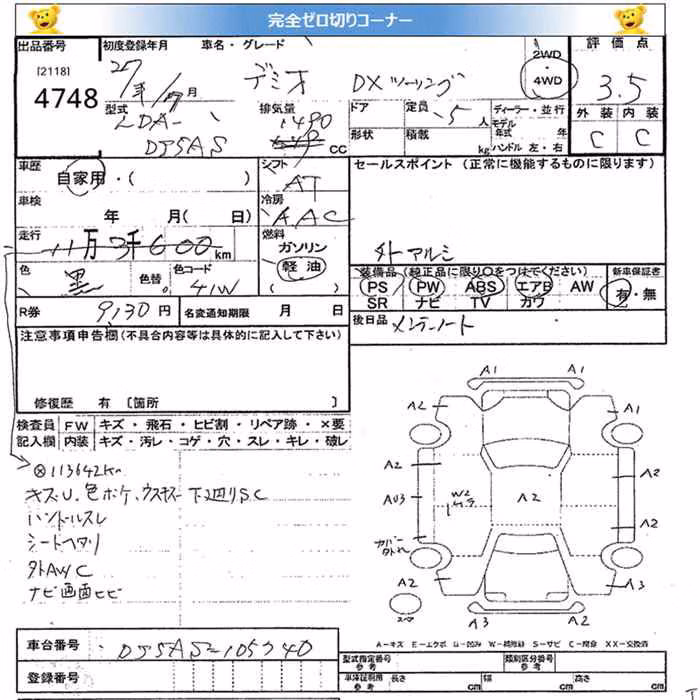 完全ゼロ切りコーナー
出品番号 初度登録年月 車名・グレード 評価点
[2118] 4748
27年 月 デミオ DXツーリング 2WD・4WD 3.5
型式 LDA-DJ5AS
排気量 1490 CC
ドア 定員 5人 ディーラー・並行
形状 積載 kg モデル年式 年 ハンドル 左・右
外装 内装
C C
車歴 自家用・( ) シフト AT セールスポイント (正常に機能するものに限ります)
車検 年 月( 日) 冷房 AAC
走行 11万3千600km 燃料 ガソリン 軽油 ( )
外アルミ
色 黒 色替 色コード 41W
装備品 (純正品に限り○をつけてください) 新車保証書
PS PW ABS エアB AW 有・無
SR ナビ TV カワ
R券 9,130円 名変通知期限 月 日
後日品 メンテノート
注意事項申告欄(不具合内容等は具体的に記入して下さい)
修復歴 有 [箇所
検査員 FW キズ・飛石・ヒビ割・リペア跡・×要
記入欄 内装 キズ・汚レ・コゲ・穴・スレ・キレ・破レ
⊗113642km
キズU、色ボケ、ウスキズ 下廻りS.C
ハンドルスレ
シートヘタリ
外AW C
ナビ画面ヒビ
A1 A1
A2 A1
A2 A2
AU3 W2 A2
A2
カバー
A2 A3
A3 A2
A-キズ E-エクボ U-凹み W-補修跡 S-サビ C-腐食 XX-交換済
車台番号 DJ5AS-105340
登録番号
型式指定番号 参考 類別区分番号 参考
車庫証明用 参考 長さ cm 幅 cm 高さ cm